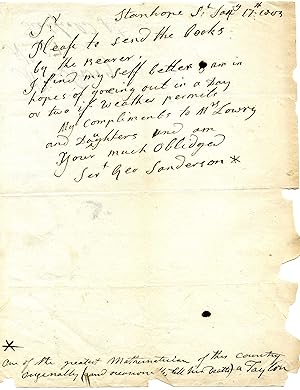 Stanhope St Jany 17th 1803
Sr
Please to send the Books
by the Bearer;
I find my Self better & am in
hopes of gowing out in a Day
or two if Weather permits
My Compliments to Mrs Lowry
and Daughters and am
Your much Obliged
Sert Geo Sanderson *
*
One of the greatest Mathematician of this country
originally (and till his death) a Taylor